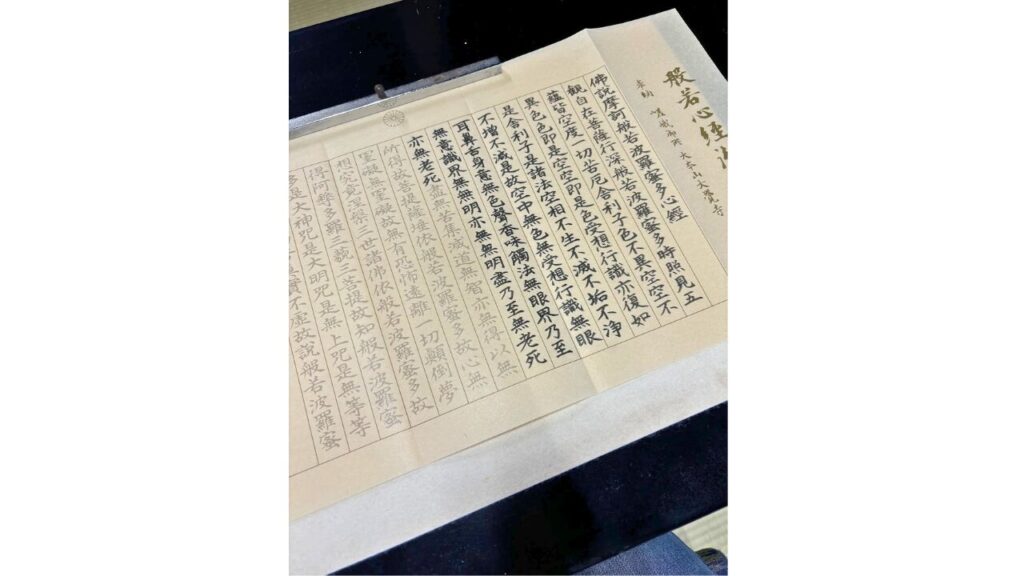 般若心經
奉納 嵯峨御所 大本山大覺寺
佛說摩訶般若波羅蜜多心經
觀自在菩薩行深般若波羅蜜多時照見五
蘊皆空度一切苦厄舍利子色不異空空不
異色色即是空空即是色受想行識亦復如
是舍利子是諸法空相不生不滅不垢不淨
不增不減是故空中無色無受想行識無眼
耳鼻舌身意無色聲香味觸法無眼界乃至
無意識界無無明亦無無明盡乃至無老死
亦無老死盡無苦集滅道無智亦無得以無
所得故菩提薩埵依般若波羅蜜多故心無
罣礙無罣礙故無有恐怖遠離一切顛倒夢
想究竟涅槃三世諸佛依般若波羅蜜多故
得阿耨多羅三藐三菩提故知般若波羅蜜
多是大神咒是大明咒是無上咒是無等等
實不虛故說般若波羅蜜